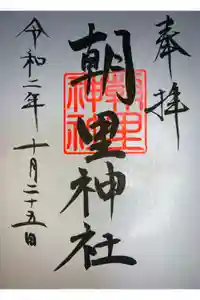 奉拝
朝里神社
令和二年十月二十五日
朝里神社